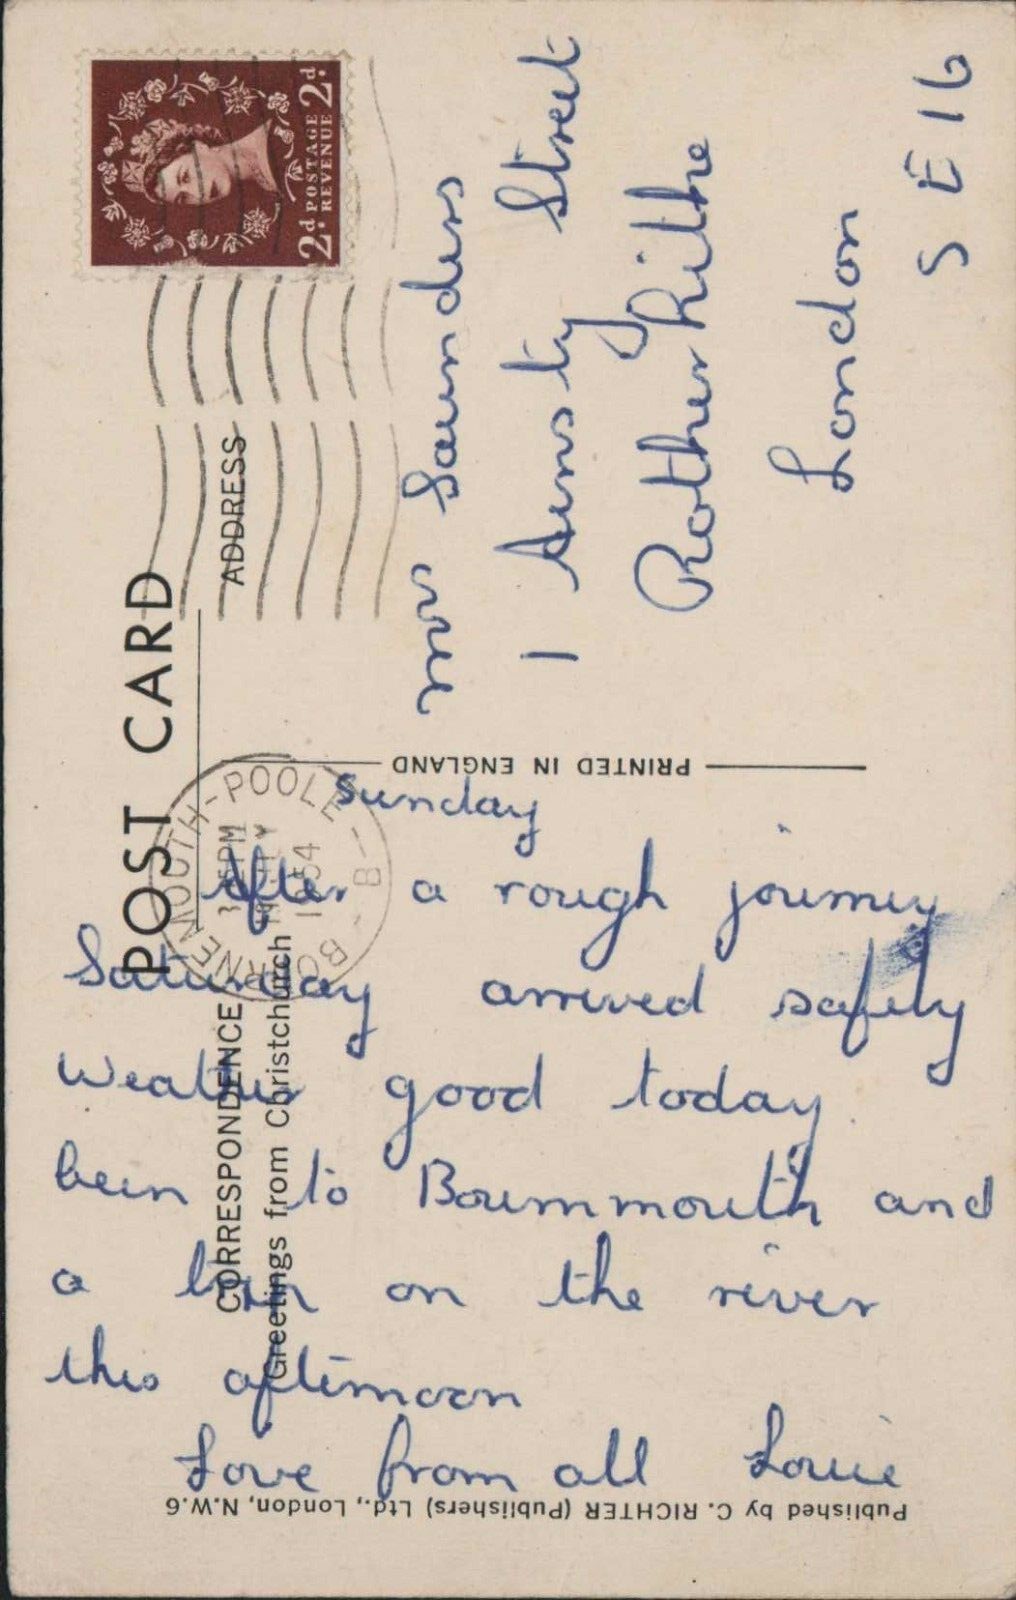 POST CARD
ADDRESS
CORRESPONDENCE
Greetings from Christchurch
PRINTED IN ENGLAND
Published by C. RICHTER (Publishers) Ltd., London, N.W.6
2d POSTAGE 2d
REVENUE
BOURNEMOUTH-POOLE
PM
1954
B
Saunders
1 Ainsty Street
Rotherhithe
London
S E 16
Sunday
After a rough journey
Saturday arrived safely
Weather good today
been to Bournmouth and
a trip on the river
this afternoon
Love from all Louie